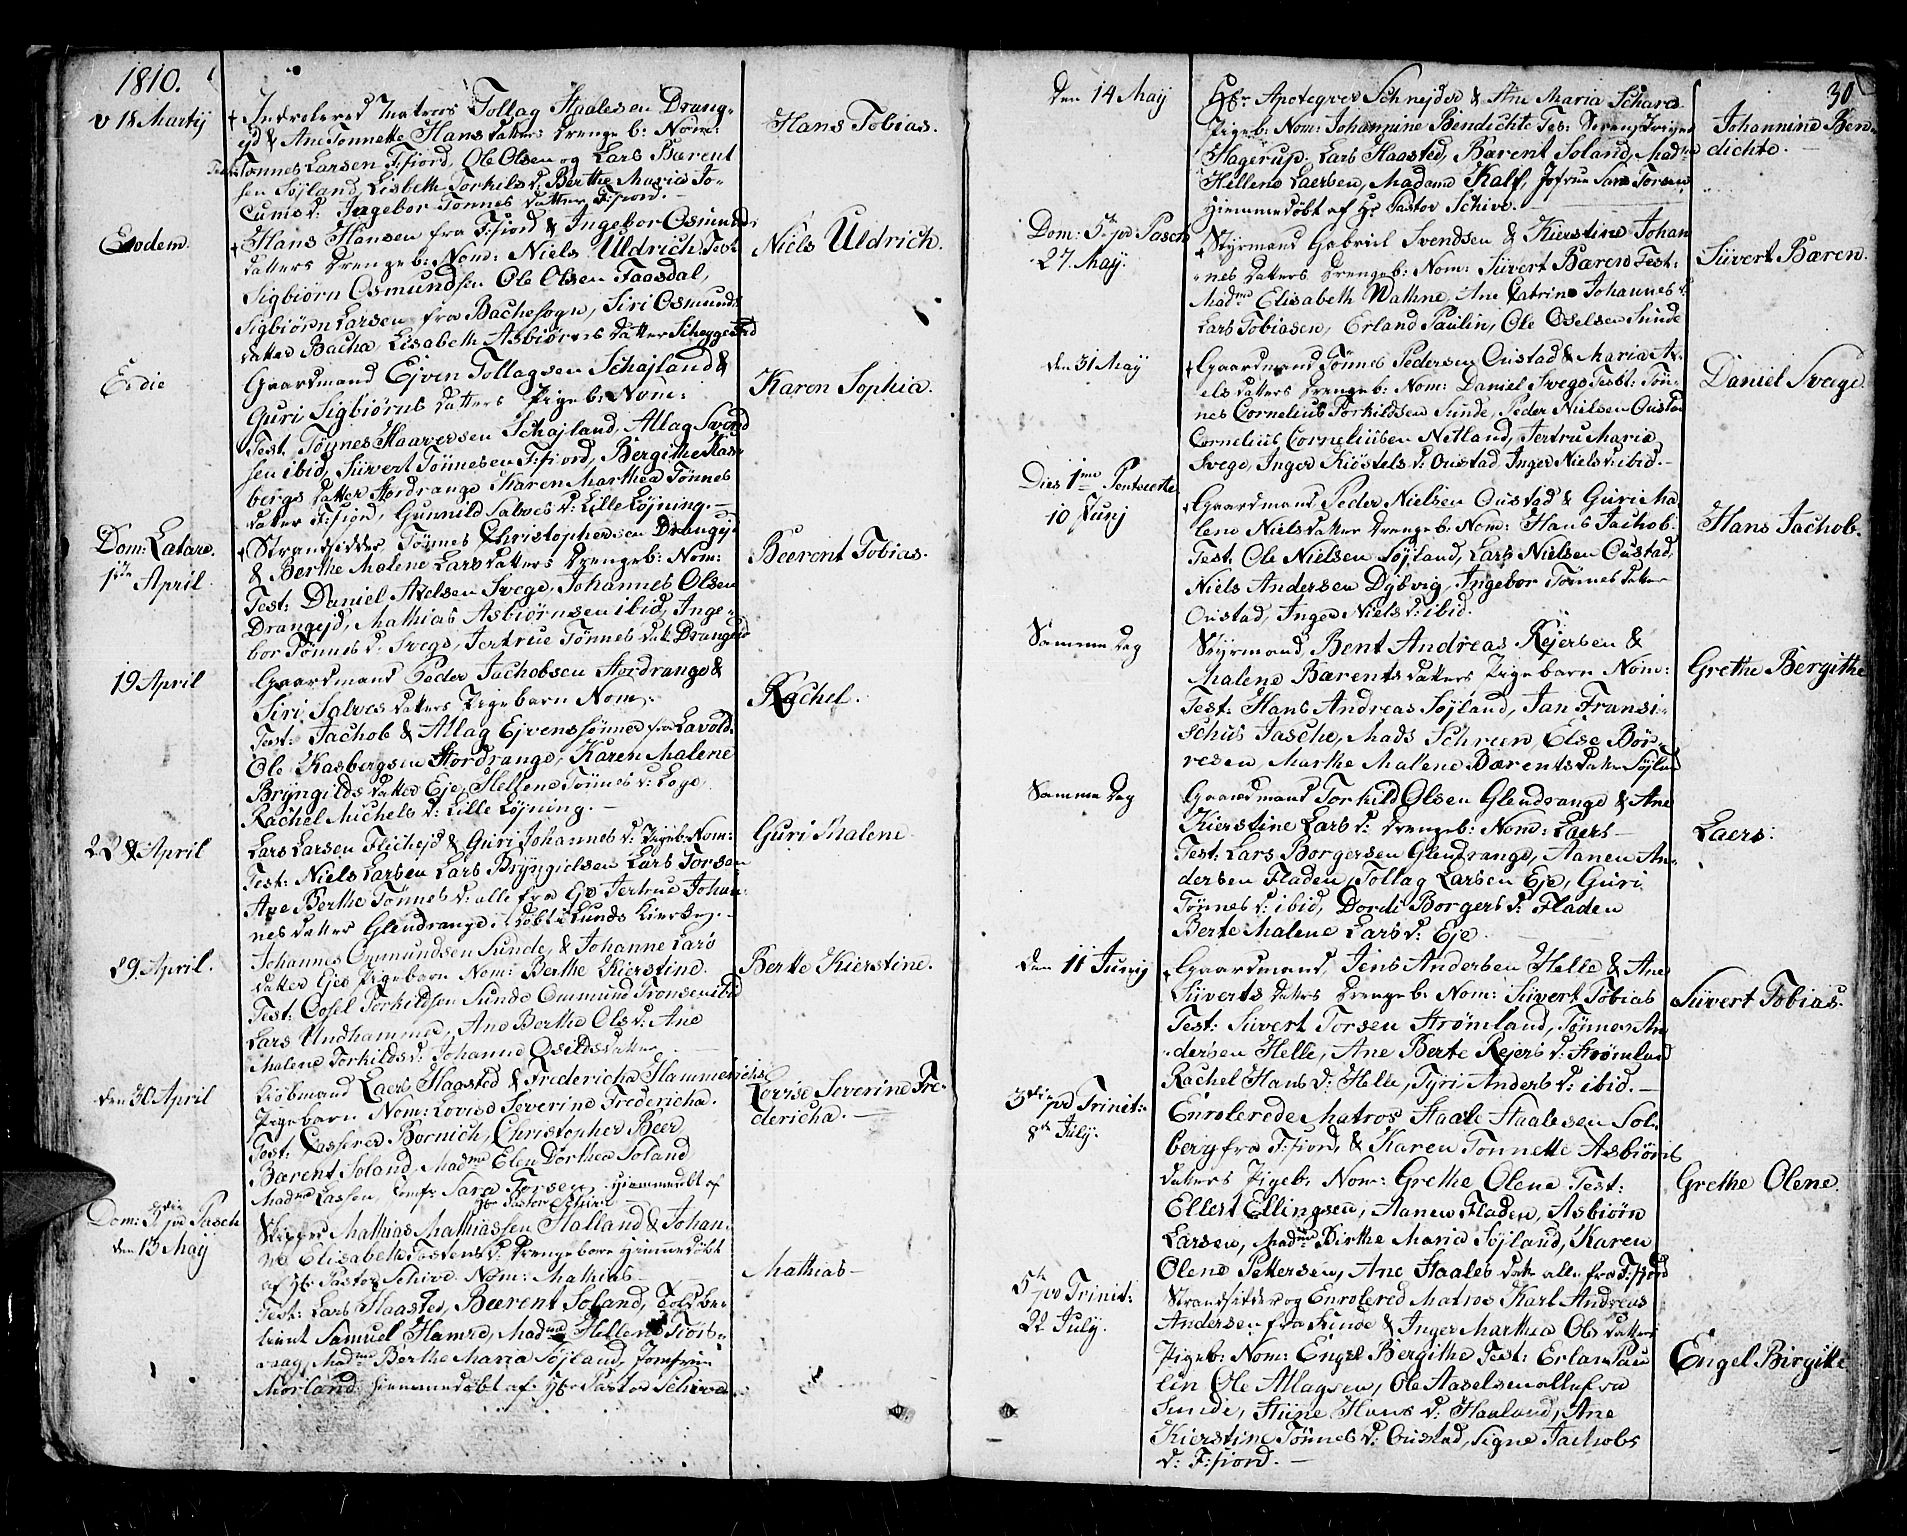 1810.
d 18 Martij
Indroleret Matros Tollag Staalesen Drang-
ejd & Ane Tonnette Hansdatters Drengeb: Nom:
Hans Tobias.
Tønnes Larsen F:fiord, Ole Olsen og Lars Bærent
sen Søjland, Lisbeth Torkilsd: Berthe Maria Jo-
cumsd: Ingebor Tønnesdatter F:fiord.
Eodem.
Hans Hansen fra F:fiord & Ingebor Osmunds
datters Drengeb: Nom: Niels Uldrich Test:
Niels Uldrich.
Sigbiørn Osmundsen Ole Olsen Faasdal,
Sigbiørn Larsen fra Bachesogn, Siri Osmunds
datter Bacha, Lisabeth Asbiørnsdatter Scheggestad
E: die
Gaardmand Ejven Tollagsen Schajland &
Guri Sigbiørns datters Pigeb: Nom:
Karen Sophia.
Test. Tønnes Haaversen Schajland, Atlag Svend
sen ibid, Sivert Tønnesen F:fiord, Bergithe Kas-
bergs datter Stordrange Karen Marthea Tønnes
datter F:fiord, Gunnild Salvesd: Lille Løjning.
Dom: Latare
1ste April.
Strandsidder Tønnes Christophersen Drangejd
& Berthe Malene Larsdatters Drengeb: Nom:
Beerent Tobias.
Test: Daniel Axelsen Svege, Johannes Olsen
Drangejd, Mathias Asbiørnsen ibid, Inge-
bor Tønnes d. Svege, Jertrue Tønnes dat: Drangejd
19 April
Gaardmand Peder Jachobsen Stordrange &
Siri Salvesdatters Pigebarn Nom:
Rachel.
Test: Jachob & Atlag Ejvenssønner fra Lavold.
Ole Kasbergsen Stordrange, Karen Malene
Bryngilds datter Eje, Hellene Tønnes d: Loge
Rachel Michels d: Lille Løjning.
22 April
Lars Larsen Flichejd & Guri Johannes d: Pigeb: Nom:
Guri Malene.
Test: Niels Larsen Lars Bryngielsen Lars Torsen
Ane Berthe Tønnes d: alle fra Eje Jertrue Johan-
nes datter Glendrange. døbt i Lunds Kierke.
29. April.
Johannes Ommundsen Sunde, & Johanne Lars
datter Eje Pigebarn Nom: Berthe Kierstine.
Berte Kierstine.
Test: Cosel Torkildsen Sunde Ommund Tronsen ibid
Lars Undhammer, Ane Berthe Ols d: Ane
Malene Torkilds d: Johanne Osilds datter
den 30 April
Kiøbmand Laers Haasted & Fredericha Hammerichs
Pigebarn Nom: Lovise Severine Fredericha.
Lovise Severine Fre-
dericha.
Test: Casserer Bornich, Christopher Beer
Bærent Soland, Madme Elen Dorthea Soland
Madme Lassen, Jomfr Sara Torsen, Hiemmedøbt af
Hr Pastor Schive
Dom: 3die po Pasch
den 13 May
Skipper Mathias Mathiassen Halland & Johan-
ne Elisabeth Tostensd: Drengebarn Hiemmedøbt
af Hr: Pastor Schive. Nom: Mathias
Mathias
Test: Lars Haasted, Beerent Soland, Told be-
tient Samuel Hamre, Madme Hellene Fiøs-
aag, Madme Berthe Maria Søjland, Jomfrue
Morland. hiemmedøbt af Hr Pastor Schive.
30
den 14 May
Hr Apotegver Schnejder & Ane Maria Schara
Pigeb: Nom: Johannine Bendichte Tes: Sorenskriver
Johannine Ben-
dichte.
Hagerup. Lars Haasted, Bærent Soland, Madme
Hellene Laersen, Madame Kalf, Jofrue Sara Torsen
hiemmedøbt af Hr Pastor Schive.
Dom: 5te po Pasch
27 May.
Styrmand Gabriel Svendsen & Kierstine Johan
nes datters Drengeb: Nom: Siivert Bæren Test:
Siivert Bæren.
Madme Elisabeth Wathne, Ane Catrine Johannes d:
Lars Tobiasen, Erland Paulin, Ole Oselsen Sunde
den 31 May
Gaardmand Tønnes Pedersen Oustad & Maria Ax-
elsdatters Drengeb: Nom: Daniel Svege Test: Tøn-
Daniel Svege
nes Cornelius Torkildsen Sunde, Peder Nielsen Oustad
Cornelius Corneliusen Netland, Jertru Maria
Svege, Inger Kiøstels d: Oustad Inger Niels d: ibid.
Dies 1me Pentecoste
10 Junj
Gaardmand Peder Nielsen Oustad & Guri Ma
lene Nielsdatter Drengeb: Nom: Hans Jachob.
Hans Jachob.
Test. Ole Nielsen Søjland, Lars Nielsen Oustad,
Niels Andersen Dybvig, Ingebor Tønnes datter
Oustad, Inger Niels d: ibid.
Samme Dag
Styrmand, Bent Andreas Rejersen &
Malene Bærentsdatters Pigebarn Nom:
Grethe Bergithe
Test: Hans Andreas Søjland, Jan Fransi-
schus Jasche, Mads Schreen, Else Bør-
resen, Marthe Malene Bærentsdatter Søjland
Samme Dag
Gaardmand Torkild Olsen Glendrange & Ane
Kierstine Lars d: Drengeb: Nom: Laers
Laers.
Test: Lars Borgersen Glendrange, Aanen An-
dersen Fladen, Tollag Larsen Eje, Guri
Tønnes d: ibid, Dordi Borgers d: Fladen
Berte Malene Lars d: Eje.
den 11 Junij
Gaardmand, Jens Andersen Helle & Ane
Siiverts datters Drengeb: Nom: Siivert Tobias
Siivert Tobias.
Test: Siivert Torsen Strømland, Tønnes An
dersen Helle, Ane Berte Rejers d: Strømland
Rachel Hans d: Helle, Tyri Anders d: ibid.
3die po Trinit:
8de July.
Enrolerede Matros Staale Staalesen Sol-
berg fra F:fiord, & Karen Tonnette Asbiørns
datters Pigeb: Nom: Grethe Olene Test:
Grethe Olene
Ellert Ellingsen, Aanen Fladen, Asbiørn
Larsen, Madme Birthe Maria Søjland, Karen
Olene Pettersen, Ane Staales datr alle fra F:fjord
5te po Trinit:
22 July.
Strandsidder og Enrolered Matros Karl Andreas
Andersen fra Kinde & Inger Marthea Ols datters
Pigeb: Nom: Engel Bergithe Test: Erlan Pau
Engel Birgitte
lin Ole Atlagsen, Ole Aaselsen alle fra
Sunde, Stine Hans d: Haaland, Ane
Kierstine Tønnes d: Oustad, Signe Jachobs
d: F:fiord.